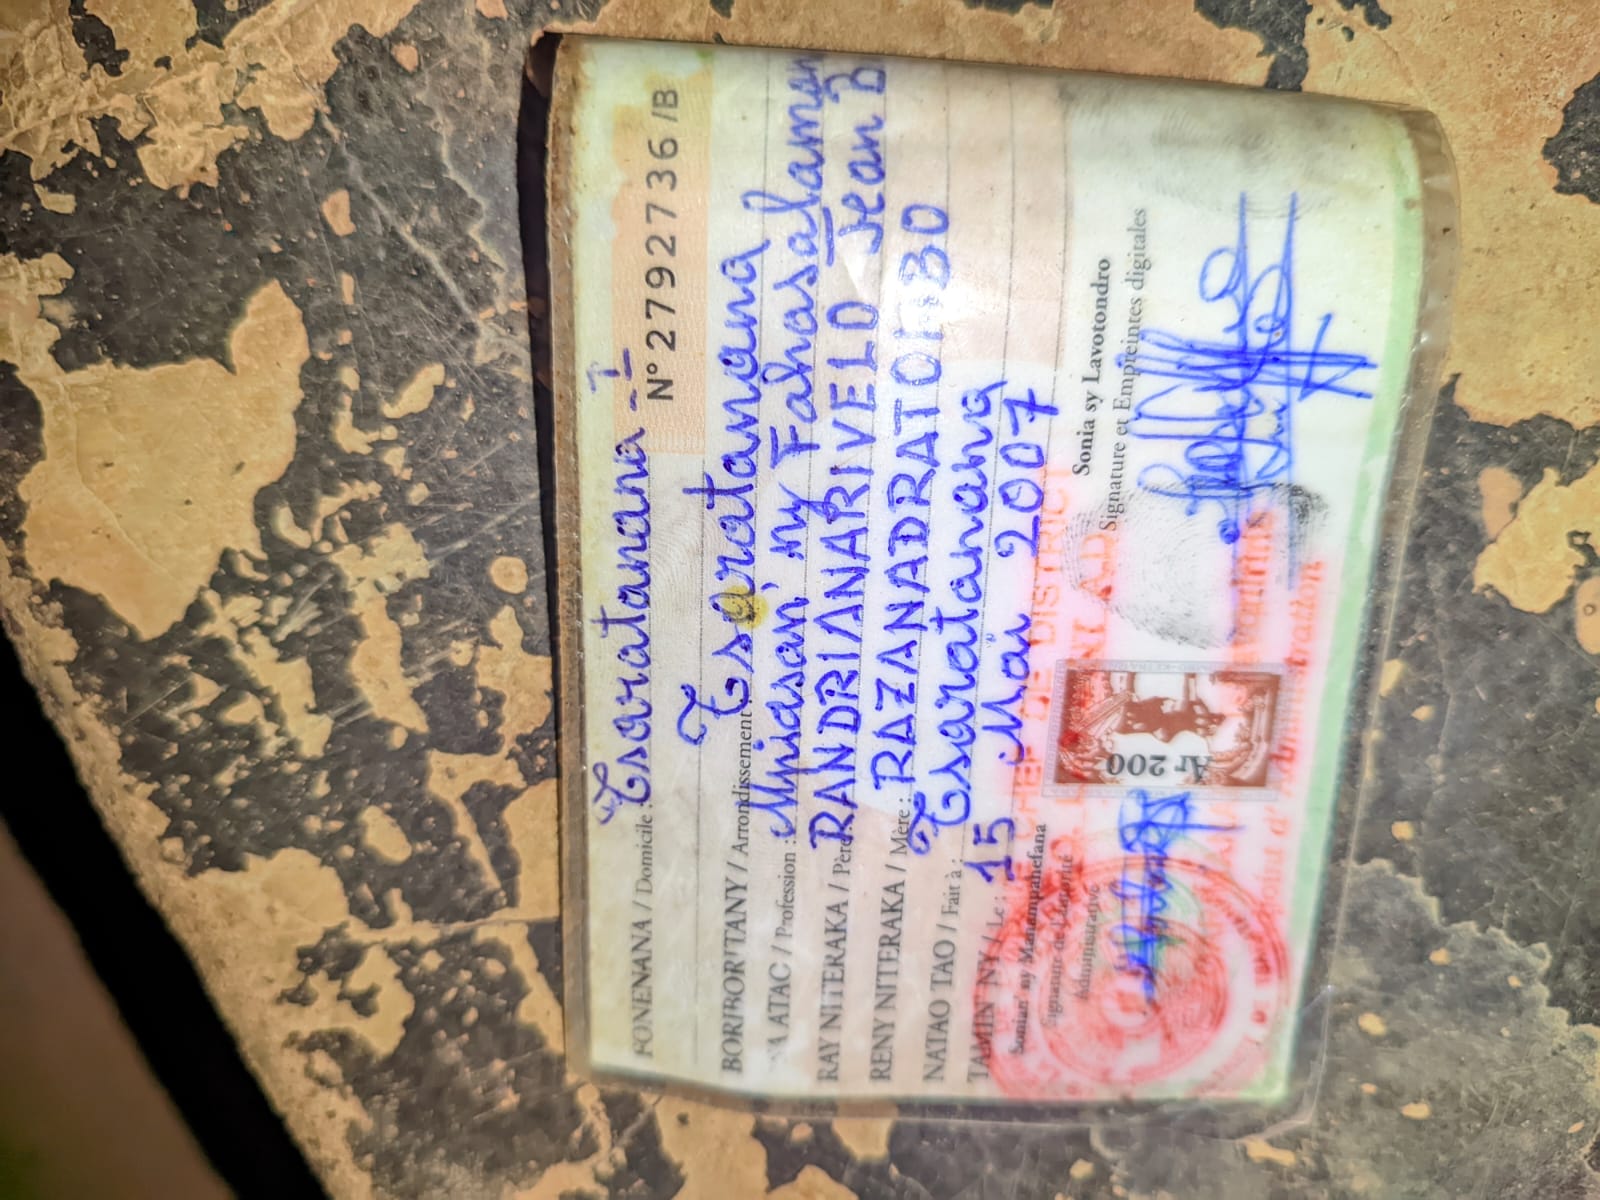 FONENANA / Domicile : Tsaratanana - I
N° 2792736 /B
BORIBORITANY / Arrondissement : Tsaratanana
ASA ATAO / Profession : Mpiasan' ny Fahasalaman
RAY NITERAKA / Père RANDRIANARIVELO Jean B
RENY NITERAKA / Mère : RAZANADRATOMBO
NATAO TAO / Fait à : Tsaratanana
TAMIN'NY / Le : 15 Mai 2007
Sonian' ny Manampahefana
Signature de l'Autorité
Administrative
Sonia sy Lavotondro
Signature et Empreintes digitales
CHEF DE DISTRICT
Ar 200
Adjoint d'Administration